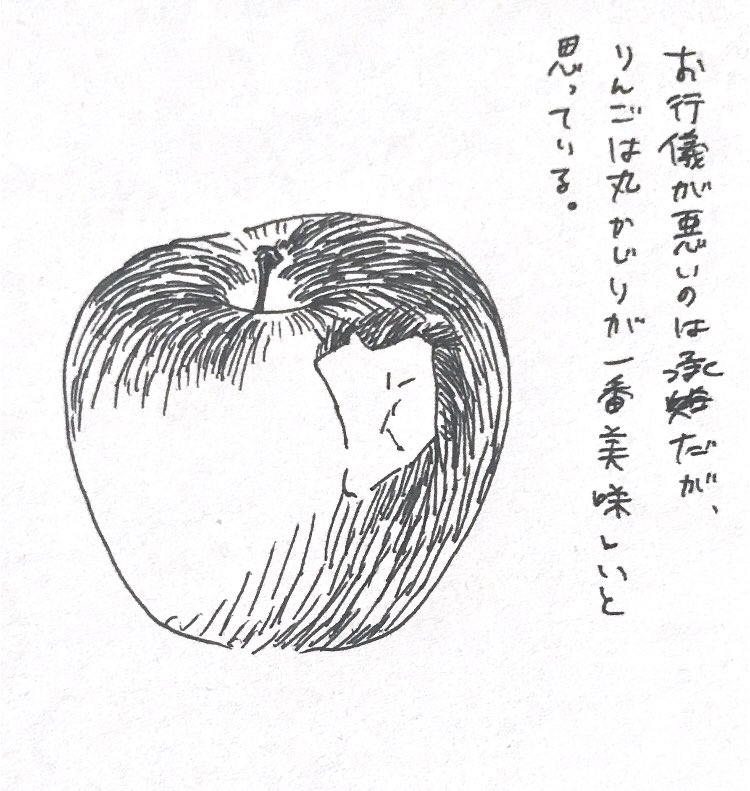 お行儀が悪いのは承知だが、
りんごは丸かじりが一番美味しいと
思っている。